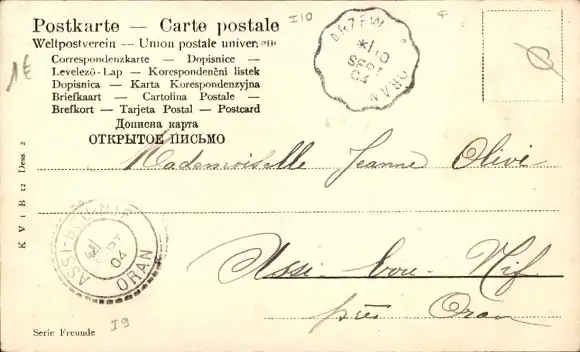 Postkarte — Carte postale
Weltpostverein — Union postale universelle
Correspondenzkarte — Dopisnice —
Levelező-Lap — Korespondenční listek
Dopisnica — Karta Korespondenzyjna
Briefkaart — Cartolina Postale —
Brefkort — Tarjeta Postal — Postcard
Дописна карта
ОТКРЫТОЕ ПИСЬМО
I10
1E
*/10
SEPT
04
ORAN
Mademoiselle Jeanne Olive
K V i B 12 Dess 2
ASSI-BOU-NIF
04
ORAN
Assi-bou-Nif
près Oran
I9
Serie Freunde